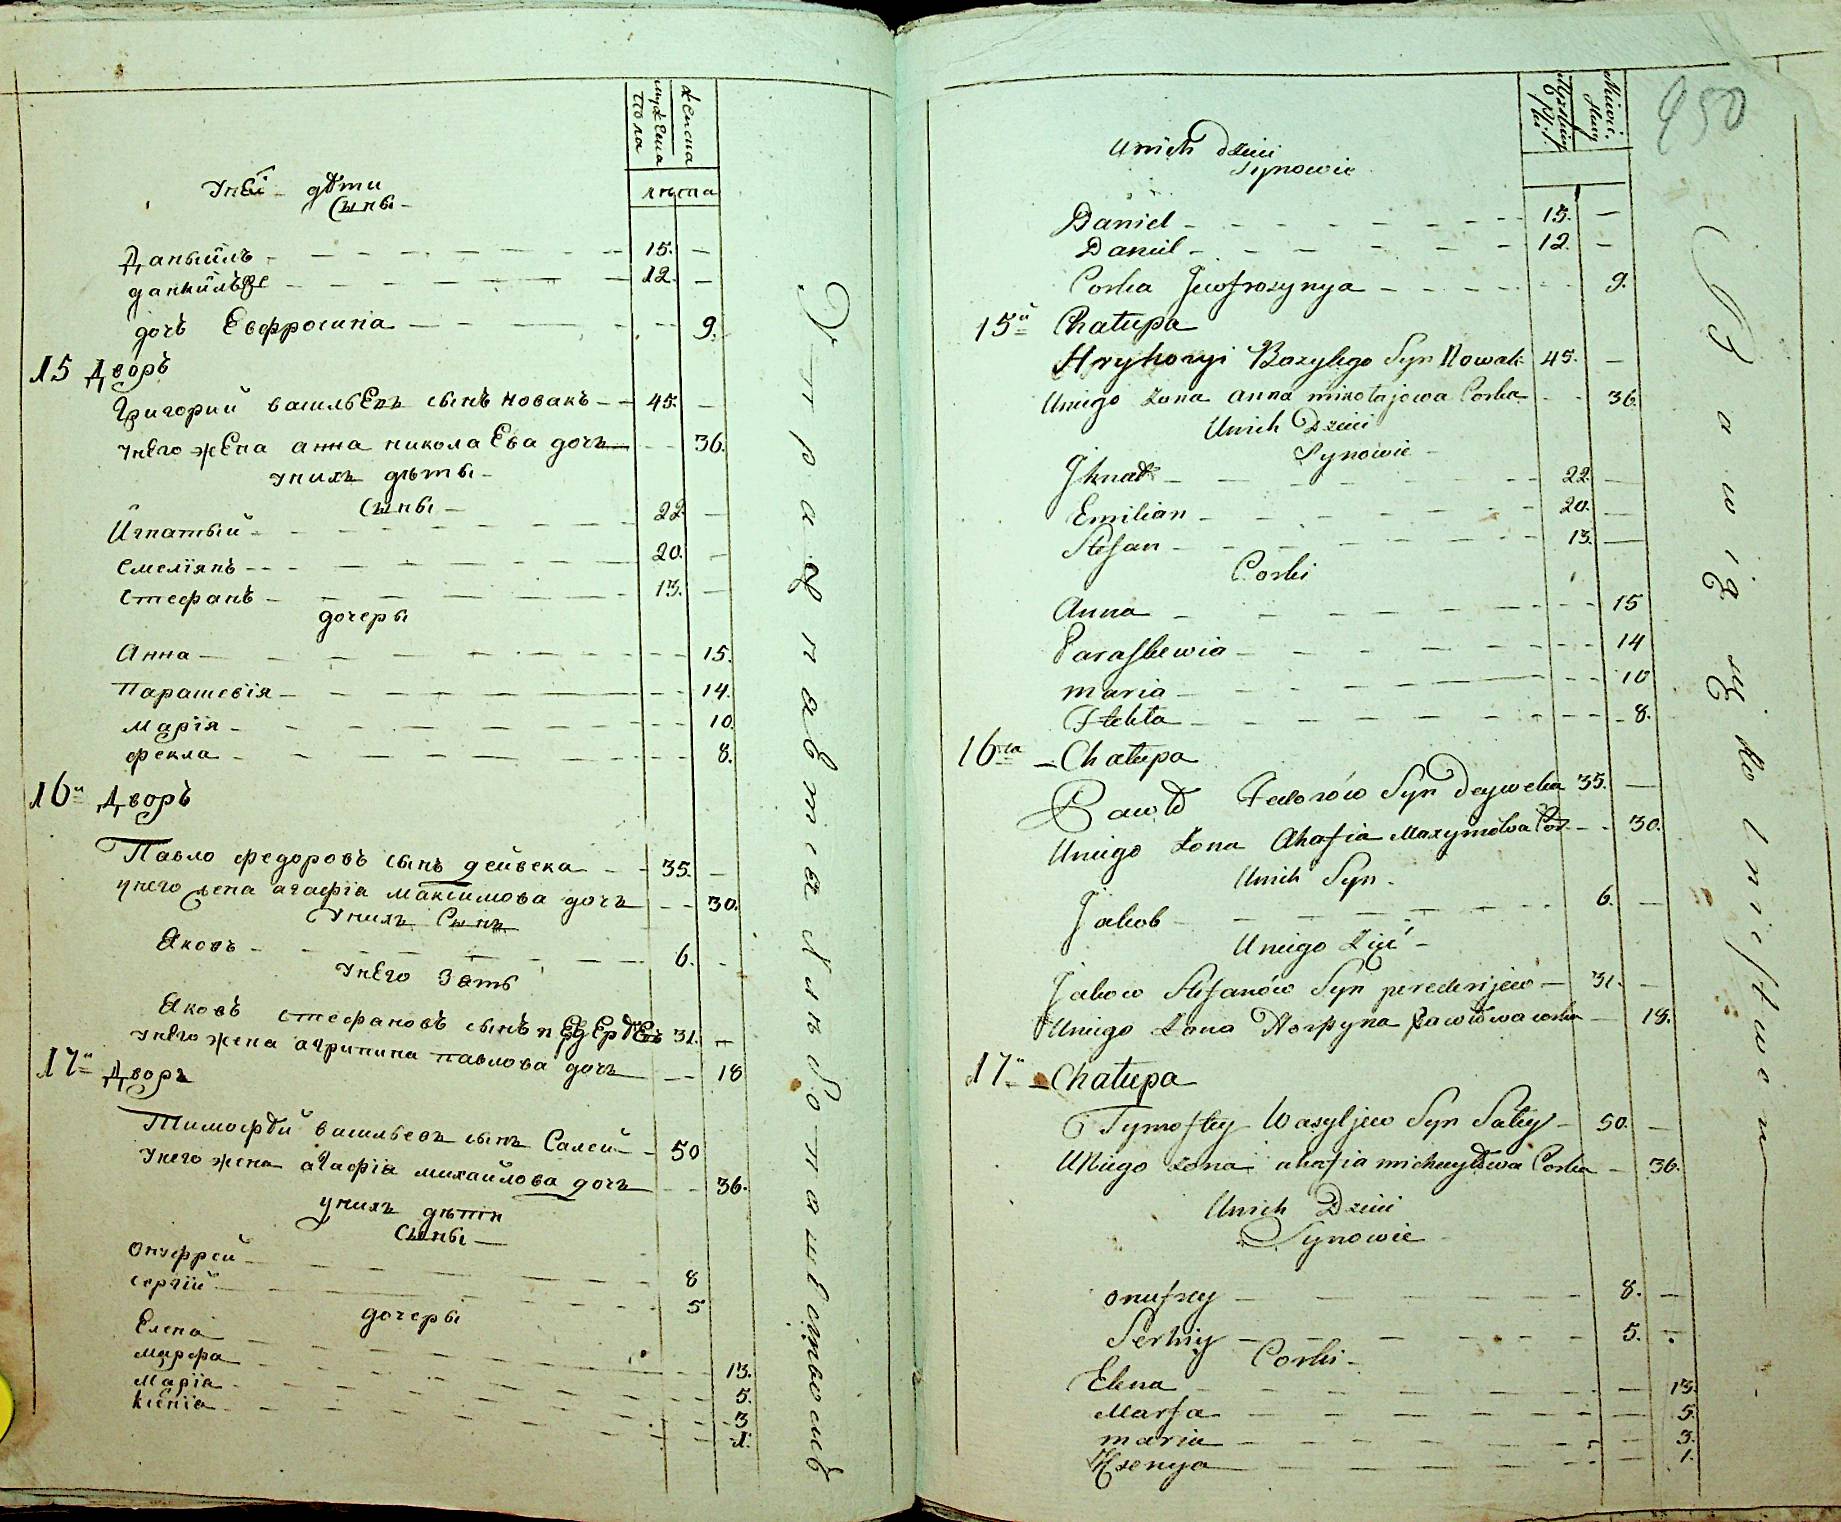 мужеска пола
женска
лѣта
Унеи дѣти
Сыны
Даныилъ 15. —
данііилъ же 12. —
дочь Евфросина 9.
15 Дворъ
Григорий васильевъ сынъ новакъ 45. —
унего жена анна николаева дочь 36.
унихъ дѣты
Сыны
Игнатый 22 —
емелiянъ 20. —
стефанъ 13. —
дочеры
Анна 15.
Парашевiя 14.
марiя 10.
фекла 8.
16й Дворъ
Павло федоровъ сынъ дейвека 35. —
унего жена агафiа максимова дочь 30.
Унихъ Сынъ
Яковъ 6. —
унего зять
Яковъ стефановъ сынъ 31. —
унего жена агрипина павлова дочь 18
17й Дворъ
Тимофѣй васильевъ сынъ Салей 50
Унего жена агафiа михайлова дочь 36.
унихъ дѣти
Сыны
онуфрей 8
сергiй 5
дочеры
Елена 13.
марфа 5.
марiа 3
ксенiа 1.
950
Unich Dzieci
Synowie
Daniel 15. —
Daniel 12. —
Corka Jewfrosynya 9.
15й Chałupa
Hryhoryi Bazylego Syn Nowak 45. —
Uniego żona anna mikołajowa Corka 36.
Unich Dzieci
Synowie
Jhnat 22. —
Emilian 20. —
Stefan 13. —
Corki
Anna 15
Paraskewia 14
maria 10
Thekla 8.
16ta Chałupa
Pawło Fedorów Syn Deyweka 35. —
Uniego żona Ahafia Maxymowa Cor. 30.
Unich Syn
Jakob 6. —
Uniego Zięć
Jakow Stefanów Syn perederijew 31. —
Uniego żona Horpyna Pawłowa corka 18.
17й Chałupa
Tymoftey Wasyljew Syn Saley 50. —
Uniego żona ahafia michayłowa Corka 36.
Unich Dzieci
Synowie
onufrey 8. —
Serhiy 5.
Corki
Elena 13.
Marfa 5.
maria 3.
Xsenya 1.